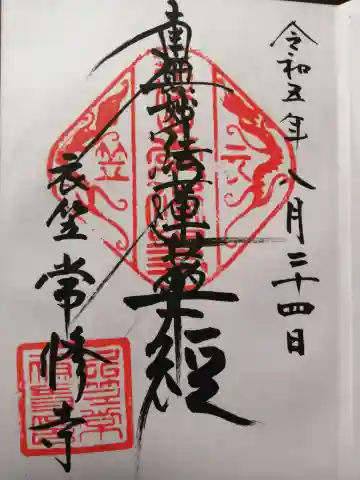 令和五年八月二十四日
南無妙法蓮華経
衣笠常修寺